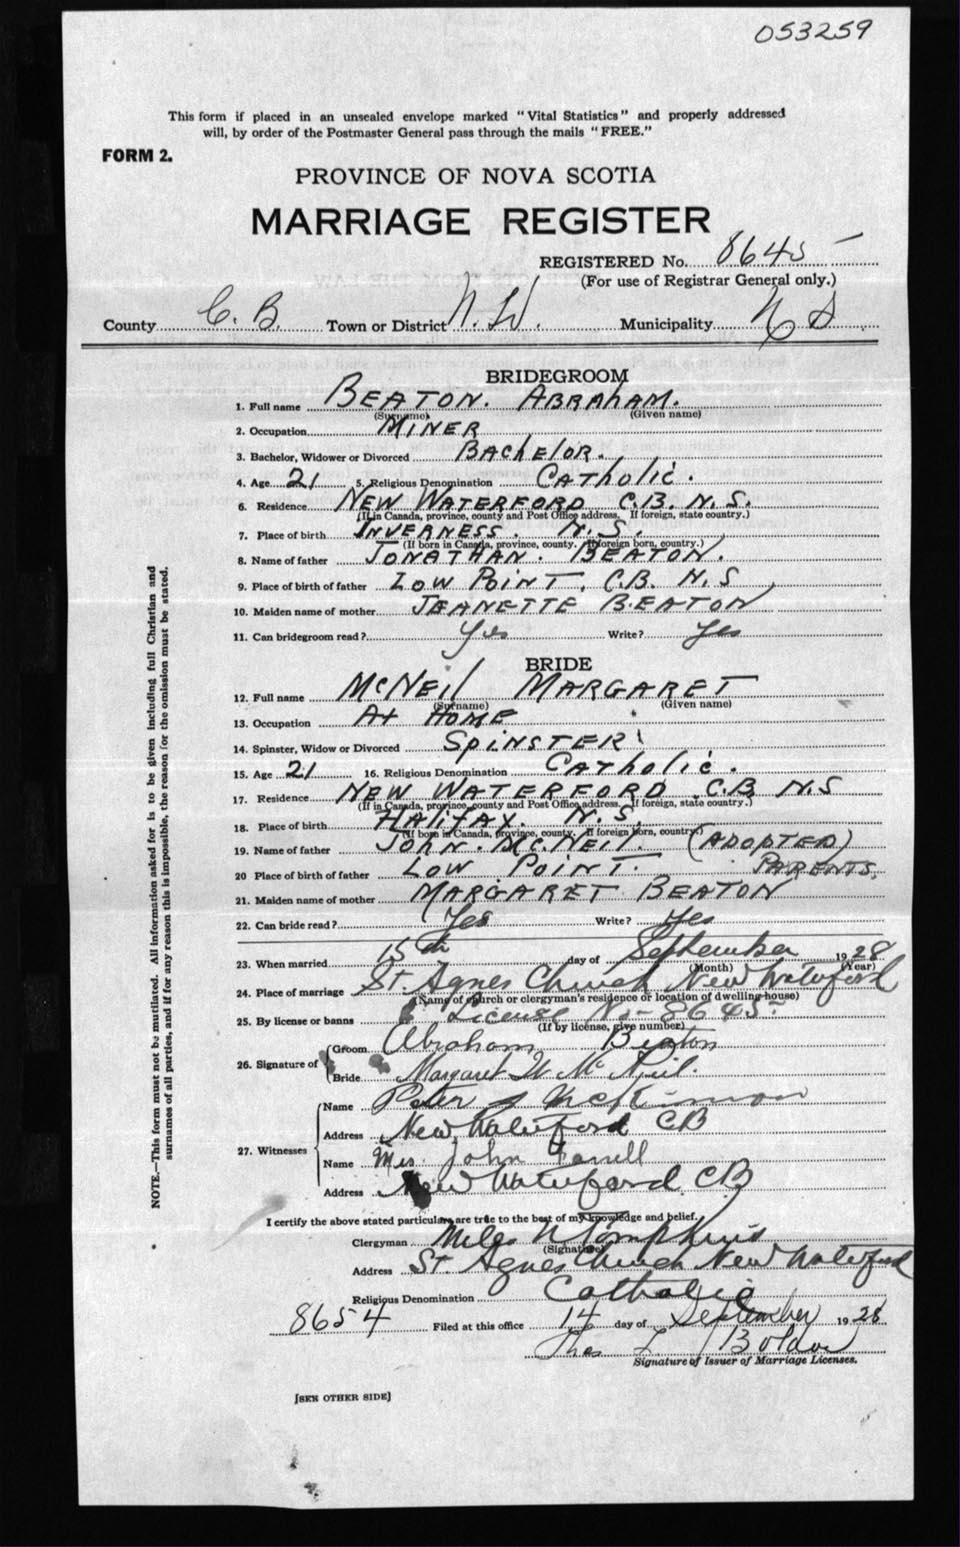 053259
This form if placed in an unsealed envelope marked "Vital Statistics" and properly addressed
will, by order of the Postmaster General pass through the mails "FREE."
FORM 2.
PROVINCE OF NOVA SCOTIA
MARRIAGE REGISTER
REGISTERED No. 8645
(For use of Registrar General only.)
County C. B. Town or District N. W. Municipality N S
BRIDEGROOM
1. Full name BEATON. ABRAHAM.
(Surname) (Given name)
2. Occupation MINER
3. Bachelor, Widower or Divorced BAChELOR.
4. Age 21 5. Religious Denomination CATholic.
6. Residence NEW WATERFORD C.B. N.S.
(If in Canada, province, county and Post Office address. If foreign, state country.)
7. Place of birth INVERNESS. N.S.
(If born in Canada, province, county. If foreign born, country.)
8. Name of father JONATHAN. BEATON.
9. Place of birth of father LOW POINT. C.B. N.S
10. Maiden name of mother JEANETTE BEATON
11. Can bridegroom read? Yes Write? Yes
BRIDE
12. Full name McNEIL MARGARET
(Surname) (Given name)
13. Occupation At HOME
14. Spinster, Widow or Divorced SpINSTER
15. Age 21 16. Religious Denomination CATholic.
17. Residence NEW WATERFORD C.B N.S
(If in Canada, province, county and Post Office address. If foreign, state country.)
18. Place of birth HALIFAX. N.S.
(If born in Canada, province, county. If foreign born, country.)
19. Name of father JOHN. McNEIL. (ADOPTED)
20 Place of birth of father LOW POINT. PARENTS.
21. Maiden name of mother MARGARET BEATON
22. Can bride read? Yes Write? Yes
23. When married 15th day of September 1928
(Month) (Year)
24. Place of marriage St. Agnes Church New Waterford
(Name of church or clergyman's residence or location of dwelling-house)
25. By license or banns License No- 8645
(If by license, give number)
26. Signature of Groom Abraham Beaton
Bride Margaret W McNeil.
27. Witnesses Name Peter J McKinnon
Address New Waterford CB
Name Mrs. John Farrell
Address New Waterford CB
I certify the above stated particulars are true to the best of my knowledge and belief.
Clergyman Miles N Tompkins
(Signature)
Address St Agnes Church New Waterford
Religious Denomination Catholic
8654 Filed at this office 14 day of September 1928
Thos
Signature of Issuer of Marriage Licenses.
[SEE OTHER SIDE]
NOTE.—This form must not be mutilated. All information asked for is to be given including full Christian and
surnames of all parties, and if for any reason this is impossible, the reason for the omission must be stated.